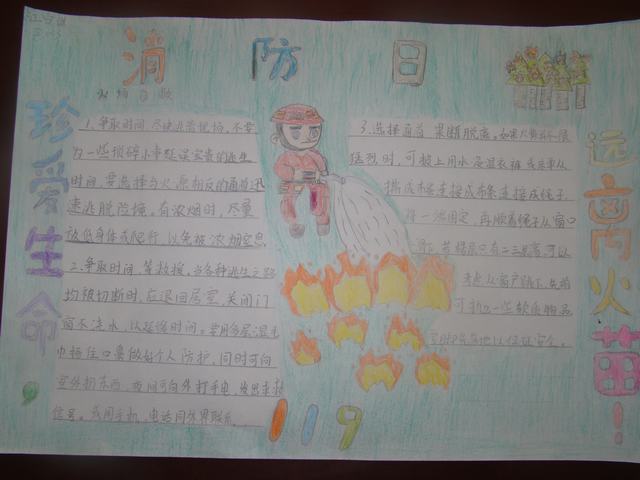 消 防 日
火场自救
珍爱生命，
远离火苗！
1.争取时间，尽快逃离现场，不要
为一些琐碎小事耽误宝贵的逃生
时间，要选择与火源相反的通道迅
速逃脱险境。有浓烟时，尽量
放低身体或爬行，以免被浓烟窒息
2.争取时间，等救援，当各种逃生之路
均被切断时，应退回居室，关闭门
窗不浇水，以延缓时间。要用多层湿毛
巾捂住口鼻做好个人防护，同时可向
室外扔东西，夜间可向外打手电，发出求救
信号。或用手机、电话同外界联系
3.选择直道 果断脱离。如果火势不很
猛烈时，可披上用水浸湿衣裤或床单从
撕成布条连接成布条连接成绳子
将一端固定，再顺着绳子从窗口
若楼层只有二三层高，可以
考虑从窗户跳下，先
可扔一些软质物品
以保证安全。
119